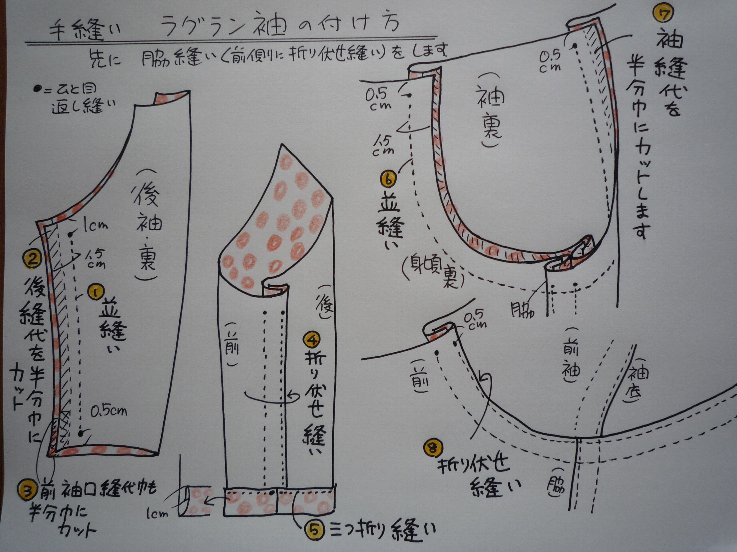 手縫い ラグラン袖の付け方
先に 脇縫い(前側に折り伏せ縫い)をします
●=ひと目
返し縫い
(後袖・裏)
1cm
1.5
cm
①並縫い
②後縫代を半分巾に
カット
0.5cm
③前袖口縫代巾も
半分巾に
カット
(前)
(後)
④折り伏せ縫い
1cm
⑤三つ折り縫い
0.5
cm
1.5
cm
⑥並縫い
(袖裏)
0.5
cm
⑦袖縫代を
半分巾にカットします
(身頃裏)
脇
0.5
cm
(前)
(前袖)
(脇)
⑧折り伏せ
縫い